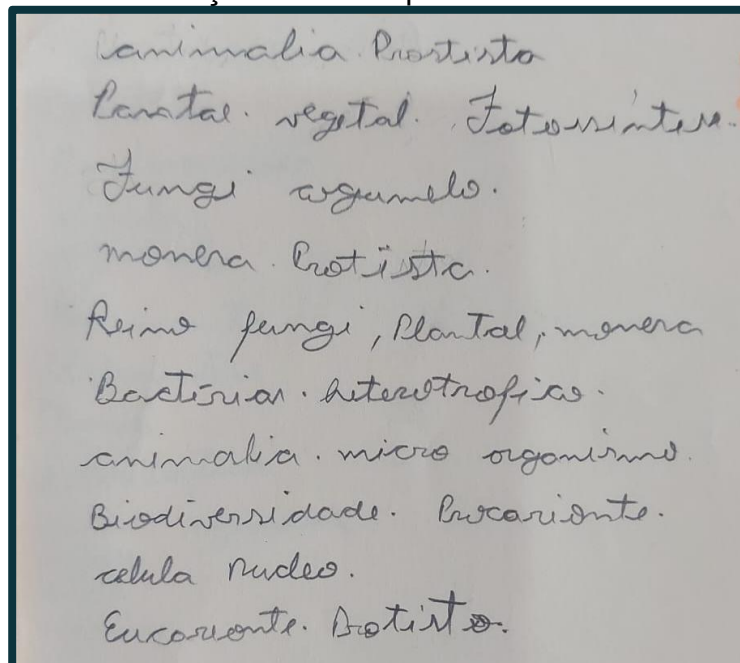 animalia. Prostista
Panatae. vegetal. Fotossíntese.
Fungi cogumelo.
monera. Protista.
Reino fungi, Plantal, monera
Bactérias. heterotrofico.
animalia. micro organismo.
Biodiversidade. Procarionte.
celula nucleo.
Eucarionte. Protisto.